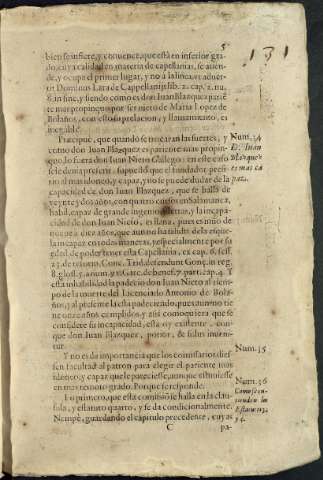 5
131
bien se infiere, y convence, que està en inferior grado, cuya calidad en materia de capellanias, se atiende, y ocupa el primer lugar, y no à la linea, ut advertit Dominus Lara de Capellanijs lib. 2. cap. 2. num.
6. in fine, y siendo como es don Iuan Blazquez pariente mas propinquo, por ser nieto de Maria Lopez de Bolaños, con esto su prelacion, y llamamiento, es inegable.
que quando se trocaran las suertes, y
como don Iuan Blazquez es pariente mas propinquo lo fuera don Iuan Nieto Gallego; en este caso
se devia preferir, supuesto que el fundador prefirió al mas idoneo, y capaz, y no se puede dudar de la
capacidad de don Iuan Blazquez, que se halla de
veynte y dos años, con quatro cursos en Salamanca,
habil, capaz de grande ingenio, letras, y la incapacidad de don Iuan Nieto, es llana, pues es niño de
nueve a diez años, que aun no ha salido de la escuela incapaz en todas maneras, y especialmente por su
edad de poder tener esta Capellania, ex cap. 6. sess.
23. de reform. Conc. Trid. defendunt Gonç. in reg.
8. gloss. 5. a num. 9. Garc. de benef. 7. part. cap. 4. Y
esta inhabilidad la padecio don Iuan Nieto al tiempo de la muerte del Licenciado Antonio de Bolaños, y al presente la està padeciendo, pues aun no tiene onze años cumplidos, y assi como quiera que se
considere su incapacidad, està oy existente, con
que don Iuan Blazquez, potior, & solus invenitur.
Y no es de importancia que los comissarios diessen facultad al patron para elegir el pariente mas
idoneo, y capaz que le pareciesse, aunque estuviesse
en mas remoto grado. Porque se responde.
Lo primero, que esta comissiõ se halla en la clausula, y estatuto quarto, y se da condicionalmente.
Nempè, guardando el capitulo precedente, cuyas
C
pa-
Num. 34
D. Iuan
Blazquez
es mas capaz.
Num. 35
Num. 36